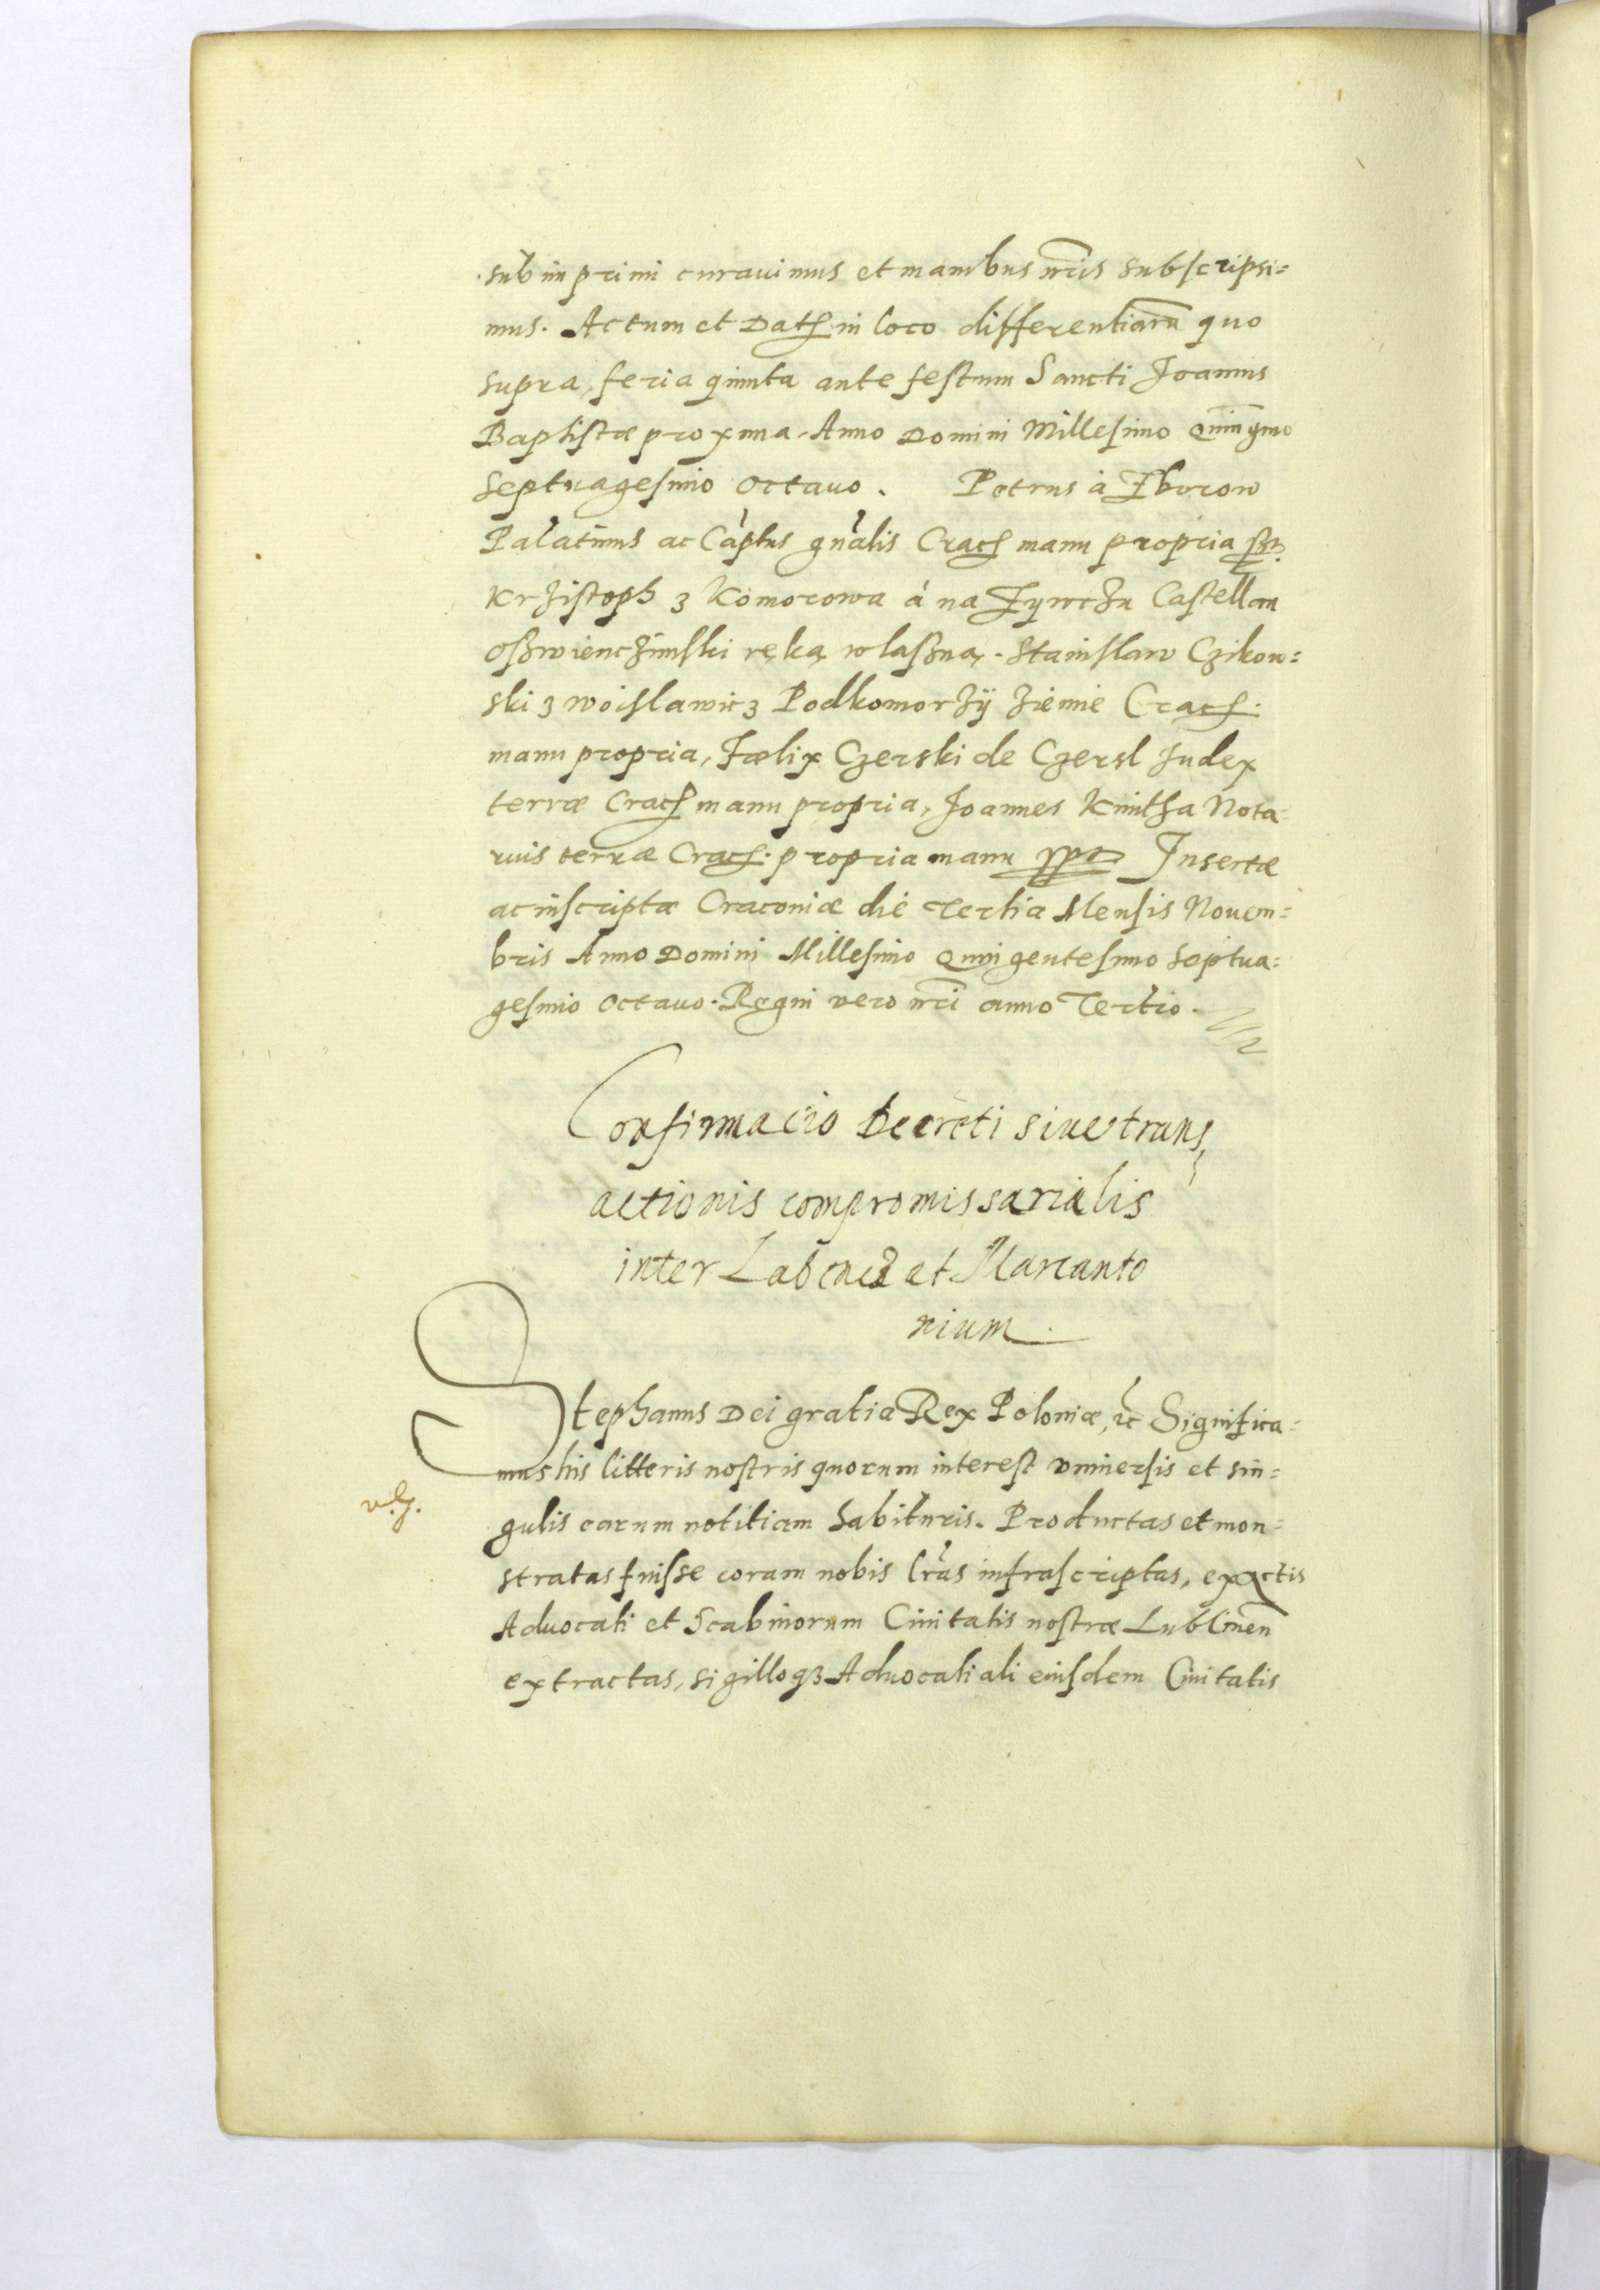 subimprimi curauimus et manibus nr̃is subscripsi=
mus. Actum et Dat in loco differentiarũ quo
supra, feria quinta ante festum Sancti Joannis
Baptistæ proxima. Anno Domini Millesimo Quingmo
Septuagesimo octauo. Petrus à Zborow
Palatinus ac Captus gnalis Crac manu propria sst
Krzistoph z Komorowa á na Zywczu Castellan
Oszwienczimski ręką wlaszną. Stanislaw Czikow=
ski z woislawicz Podkomorzÿ ziemie Crac.
manu propria, Fælix Czerski de Czersl Judex
terræ Crac manu propria, Joannes Kmitha Nota=
rius terræ Crac. propria manu Insertæ
ac inscriptæ Cracouiæ die Tertia Mensis Nouem=
bris Anno Domini Millesimo Quingentesimo septua=
gesimo octauo. Regni vero nr̃i anno Tertio.
Confirmacio Decreti siue trans
actionis compromissarialis
inter et Marcanto
nium.
Stephanus Dei gratia Rex Poloniæ, ꝛc̃ Significa=
mus his litteris nostris quorum interest vniuersis et sin=
gulis earum notitiam habituris. Productas et mon=
stratas fuisse coram nobis lr̃as infrascriptas, ex actis
Aduocati et Scabinorum Ciuitatis nostræ Lublineñ
extractas, sigilloqꝫ Aduocatiali eiusdem Ciuitatis